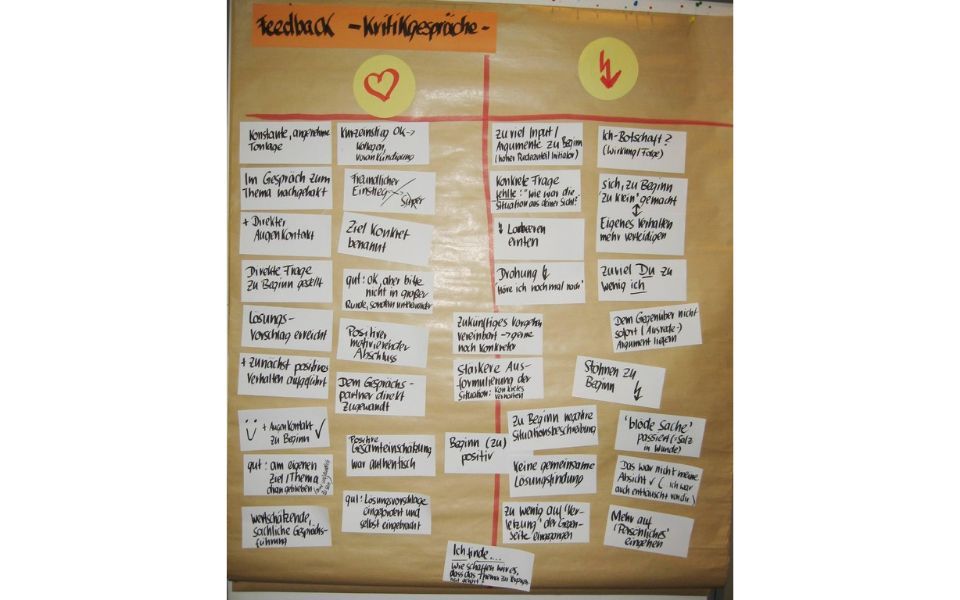 Feedback - Kritikgespräche -
Konstante, angenehme
Tonlage
Im Gespräch zum
Thema nachgehakt
+ Direkter
Augenkontakt
Direkte Frage
zu Beginn gestellt
Lösungs-
vorschlag erreicht
+ zunächst positives
Verhalten aufgeführt
+ Augenkontakt
zu Beginn
gut: am eigenen
Ziel/Thema
dran geblieben
wertschätzende,
sachliche Gesprächs-
führung
Kurzeinstieg OK →
Vorlagen,
Vorankündigung
Freundlicher
Einstieg
Ziel konkret
benannt
gut: ok, aber bitte
nicht in großer
Runde, sondern untereinander
Positiver
motivierender
Abschluss
Dem Gesprächs-
partner direkt
zugewandt
Positive
Gesamteinschätzung
war authentisch
gut: Lösungsvorschläge
eingefordert und
selbst eingebracht
zu viel Input/
Argumente zu Beginn
(hoher Redeanteil Initiator)
Konkrete Frage
fehlte: "Wie war die
Situation aus deiner Sicht?"
Lorbeeren
ernten
Drohung
"Höre ich nochmal nach"
Zukünftiges Vorgehen
vereinbart → gerne
noch konkreter
Stärkere Aus-
formulierung der
Situation: konkretes
Verhalten
zu Beginn negative
Situationsbeschreibung
Beginn (zu)
positiv
Keine gemeinsame
Lösungsfindung
zu wenig auf "Ver-
letzung" der Gegen-
seite eingegangen
Ich finde....
wie schaffen wir es,
dass das Thema zu
Ich-Botschaft?
(Wirkung/Folge)
sich, zu Beginn
"zu klein" gemacht
Eigenes Verhalten
mehr verteidigen
zuviel Du zu
wenig ich
Dem Gegenüber nicht
sofort (Ausrede-)
Argument liefern
Stöhnen zu
Beginn
"blöde Sache"
passiert (= Salz
in Wunde)
Das war nicht meine
Absicht ✓ (ich war
auch enttäuscht von dir)
Mehr auf
"Persönliches"
eingehen